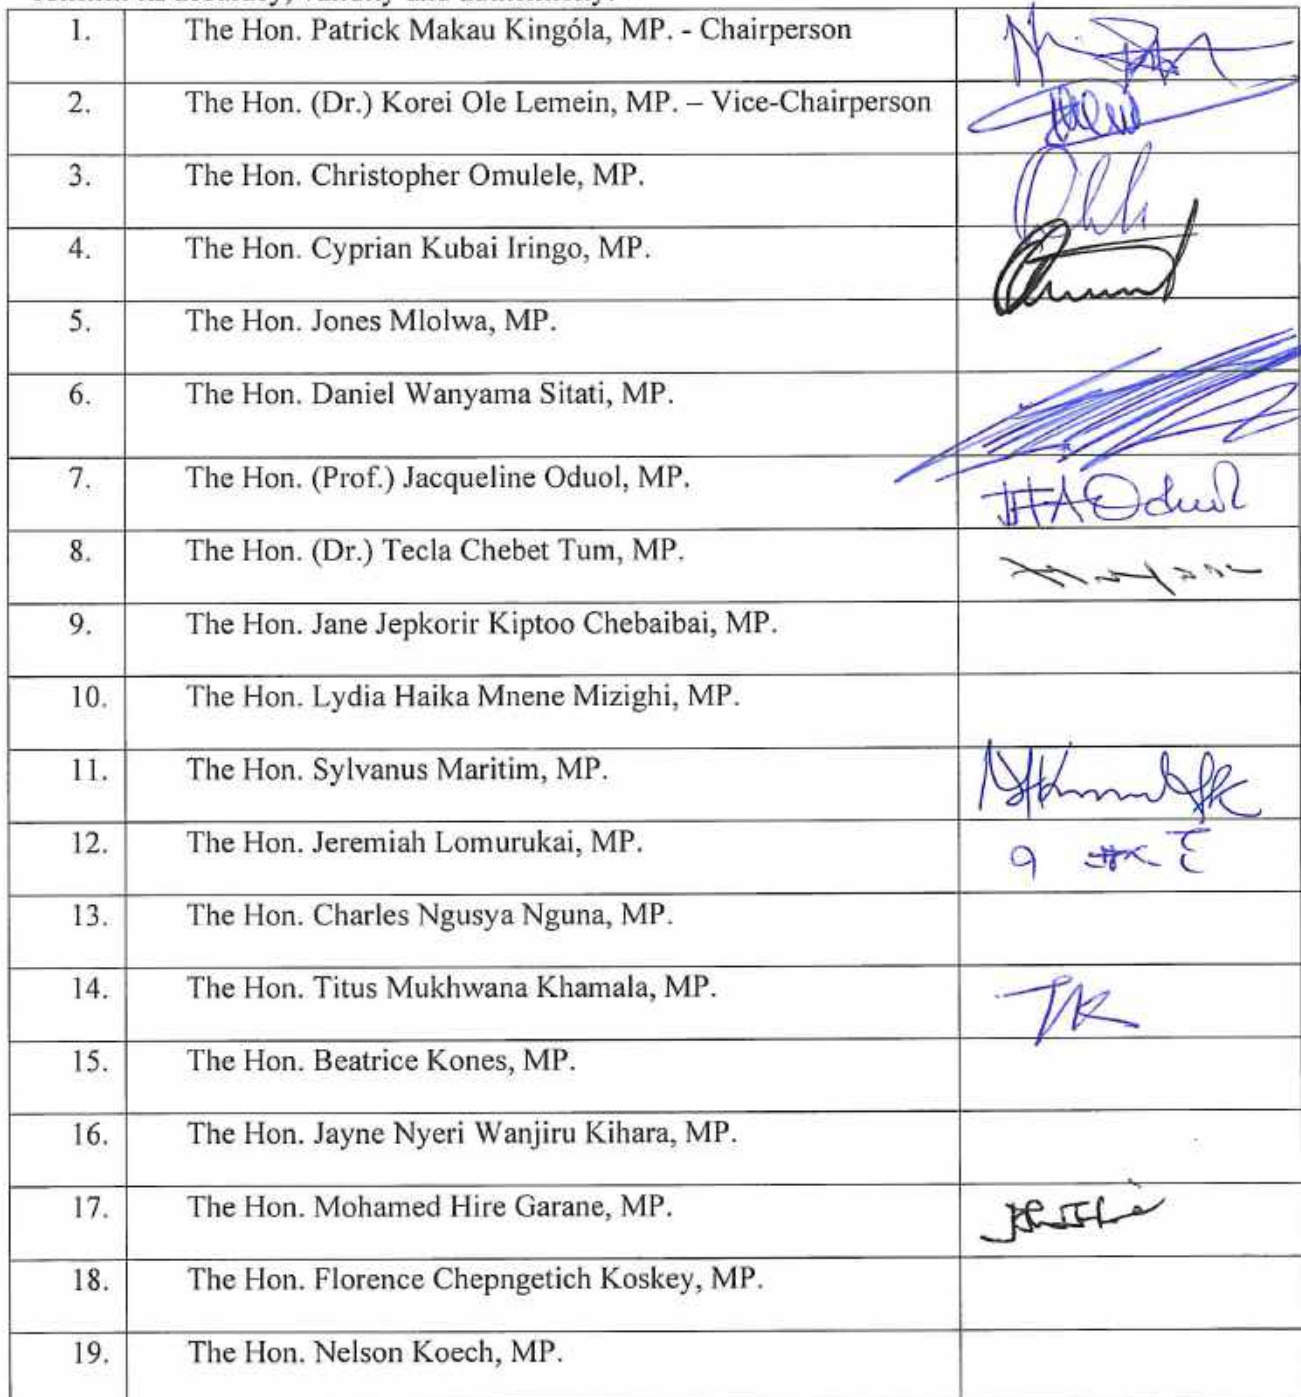 1. The Hon. Patrick Makau Kingóla, MP. - Chairperson
2. The Hon. (Dr.) Korei Ole Lemein, MP. – Vice-Chairperson
3. The Hon. Christopher Omulele, MP.
4. The Hon. Cyprian Kubai Iringo, MP.
5. The Hon. Jones Mlolwa, MP.
6. The Hon. Daniel Wanyama Sitati, MP.
7. The Hon. (Prof.) Jacqueline Oduol, MP. JHA Oduol
8. The Hon. (Dr.) Tecla Chebet Tum, MP.
9. The Hon. Jane Jepkorir Kiptoo Chebaibai, MP.
10. The Hon. Lydia Haika Mnene Mizighi, MP.
11. The Hon. Sylvanus Maritim, MP.
12. The Hon. Jeremiah Lomurukai, MP.
13. The Hon. Charles Ngusya Nguna, MP.
14. The Hon. Titus Mukhwana Khamala, MP. TK
15. The Hon. Beatrice Kones, MP.
16. The Hon. Jayne Nyeri Wanjiru Kihara, MP.
17. The Hon. Mohamed Hire Garane, MP.
18. The Hon. Florence Chepngetich Koskey, MP.
19. The Hon. Nelson Koech, MP.